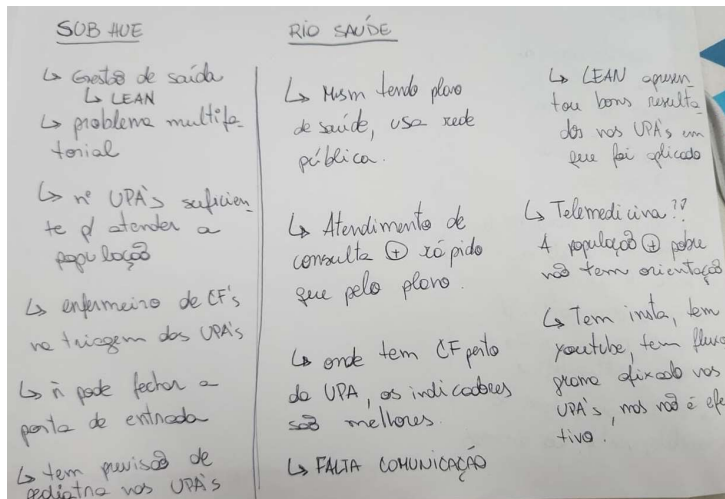 SUB HUE
↳ Gestão de saída
↳ LEAN
↳ problema multifa-
torial
↳ nº UPA's suficien-
te p/ atender a
população
↳ enfermeiro de CF's
na triagem das UPA's
↳ ñ pode fechar a
porta de entrada
↳ tem previsão de
pediatria nas UPA's
RIO SAÚDE
↳ Msm tendo plano
de saúde, usa rede
pública.
↳ Atendimento de
consulta ⊕ rápido
que pelo plano.
↳ onde tem CF perto
da UPA, os indicadores
são melhores.
↳ FALTA COMUNICAÇÃO
↳ LEAN apresen-
tou bons resulta-
dos nas UPA's em
que foi aplicado
↳ Telemedicina??
A população ⊕ pobre
não tem orientação
↳ Tem insta, tem
youtube, tem fluxo
grama afixado nas
UPA's, mas não é efe
tivo.